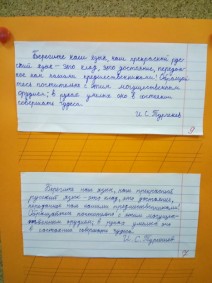 Берегите наш язык, наш прекрасный рус-
ский язык – это клад, это достояние, передан-
ное нам нашими предшественниками! Обращай-
тесь почтительно с этим могущественным
орудием; в руках умелых оно в состоянии
совершать чудеса.
И. С. Тургенев
Берегите наш язык, наш прекрасный
русский язык – это клад, это достояние,
переданное нам нашими предшественниками!
Обращайтесь почтительно с этим могуще-
ственным орудием; в руках умелых оно
в состоянии совершать чудеса.
И. С. Тургенев
7